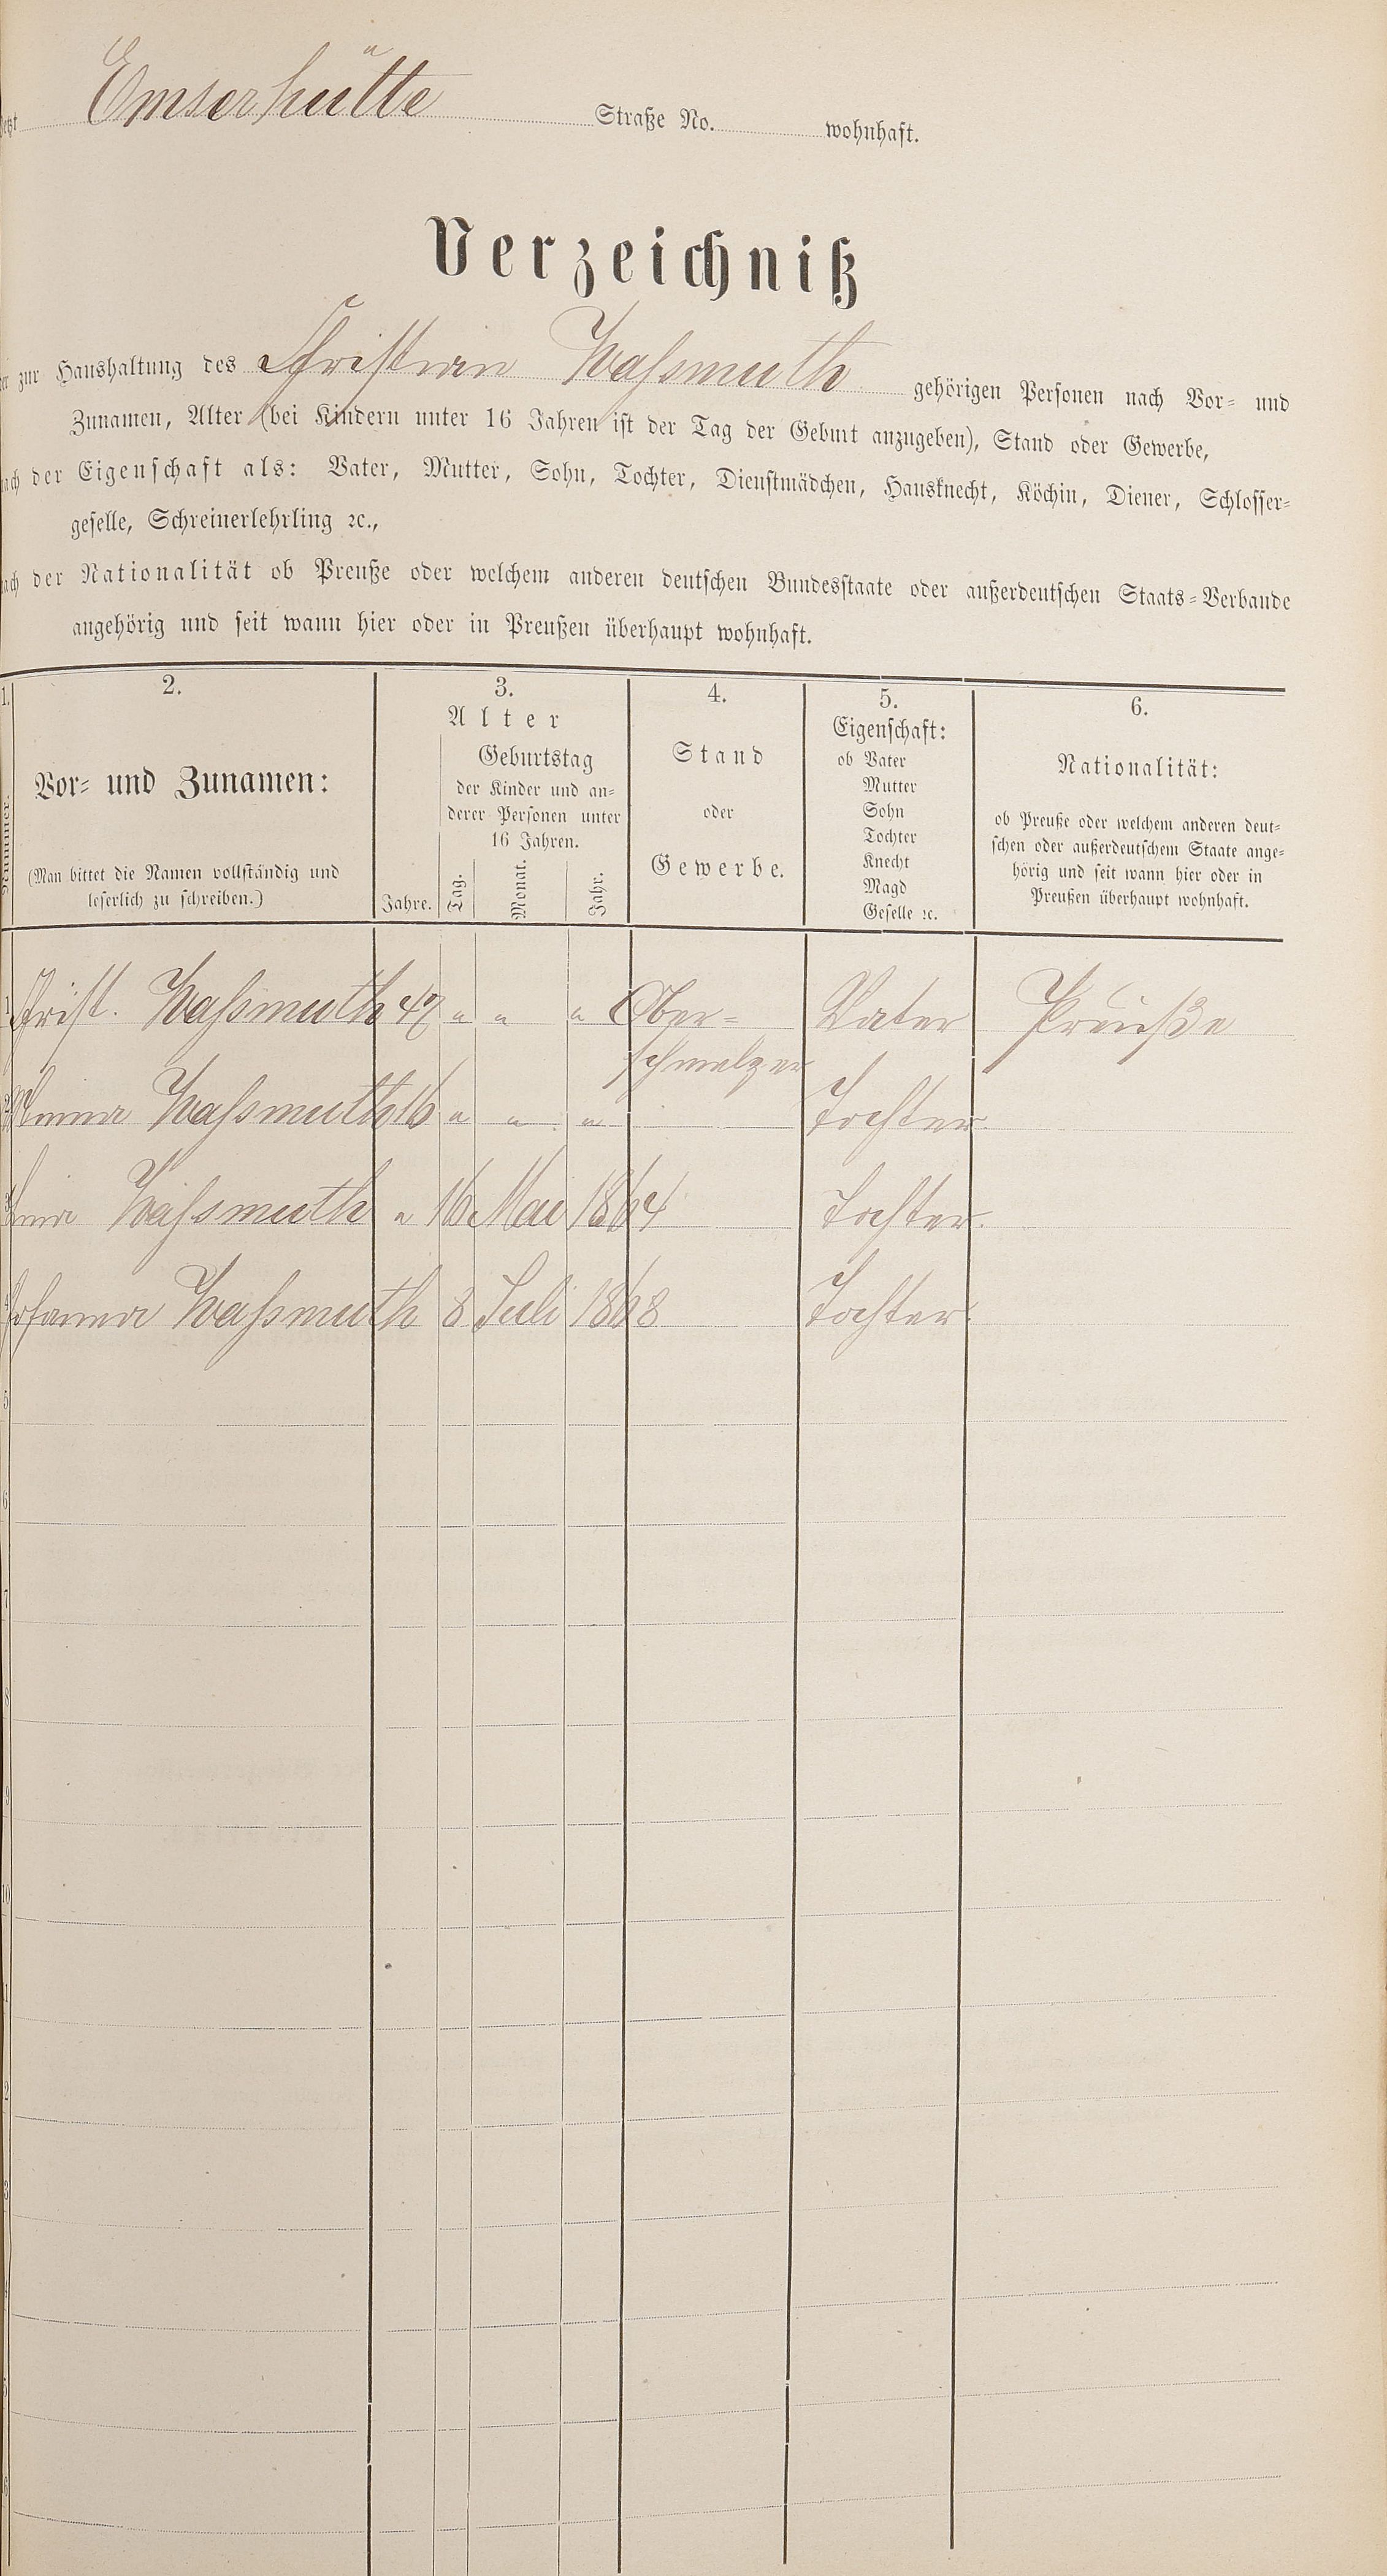 Emserhütte Straße No. wohnhaft.
Verzeichniß
zur Haushaltung des Christian Waßmuth gehörigen Personen nach Vor- und
Zunamen, Alter (bei Kindern unter 16 Jahren ist der Tag der Geburt anzugeben), Stand oder Gewerbe,
der Eigenschaft als: Vater, Mutter, Sohn, Tochter, Dienstmädchen, Hausknecht, Köchin, Diener, Schlosser-
geselle, Schreinerlehrling ꝛc.,
der Nationalität ob Preuße oder welchem anderen deutschen Bundesstaate oder außerdeutschen Staats-Verbande
angehörig und seit wann hier oder in Preußen überhaupt wohnhaft.
1. 2. 3. 4. 5. 6.
Nummer.
Vor- und Zunamen:
(Man bittet die Namen vollständig und
leserlich zu schreiben.)
Alter
Jahre.
Geburtstag
der Kinder und an-
derer Personen unter
16 Jahren.
Tag. Monat. Jahr.
Stand
oder
Gewerbe.
Eigenschaft:
ob Vater
Mutter
Sohn
Tochter
Knecht
Magd
Geselle ꝛc.
Nationalität:
ob Preuße oder welchem anderen deut-
schen oder außerdeutschem Staate ange-
hörig und seit wann hier oder in
Preußen überhaupt wohnhaft.
1 Christ. Waßmuth 47 " " " Ober- Vater Preuße
schmelzer
Waßmuth 16 " " " Tochter
Waßmuth " 16 Mai 1864 Tochter.
Johanna Waßmuth 8 Juli 1868 Tochter.
5
6
7
8
9
10
1
2
3
4
5
6